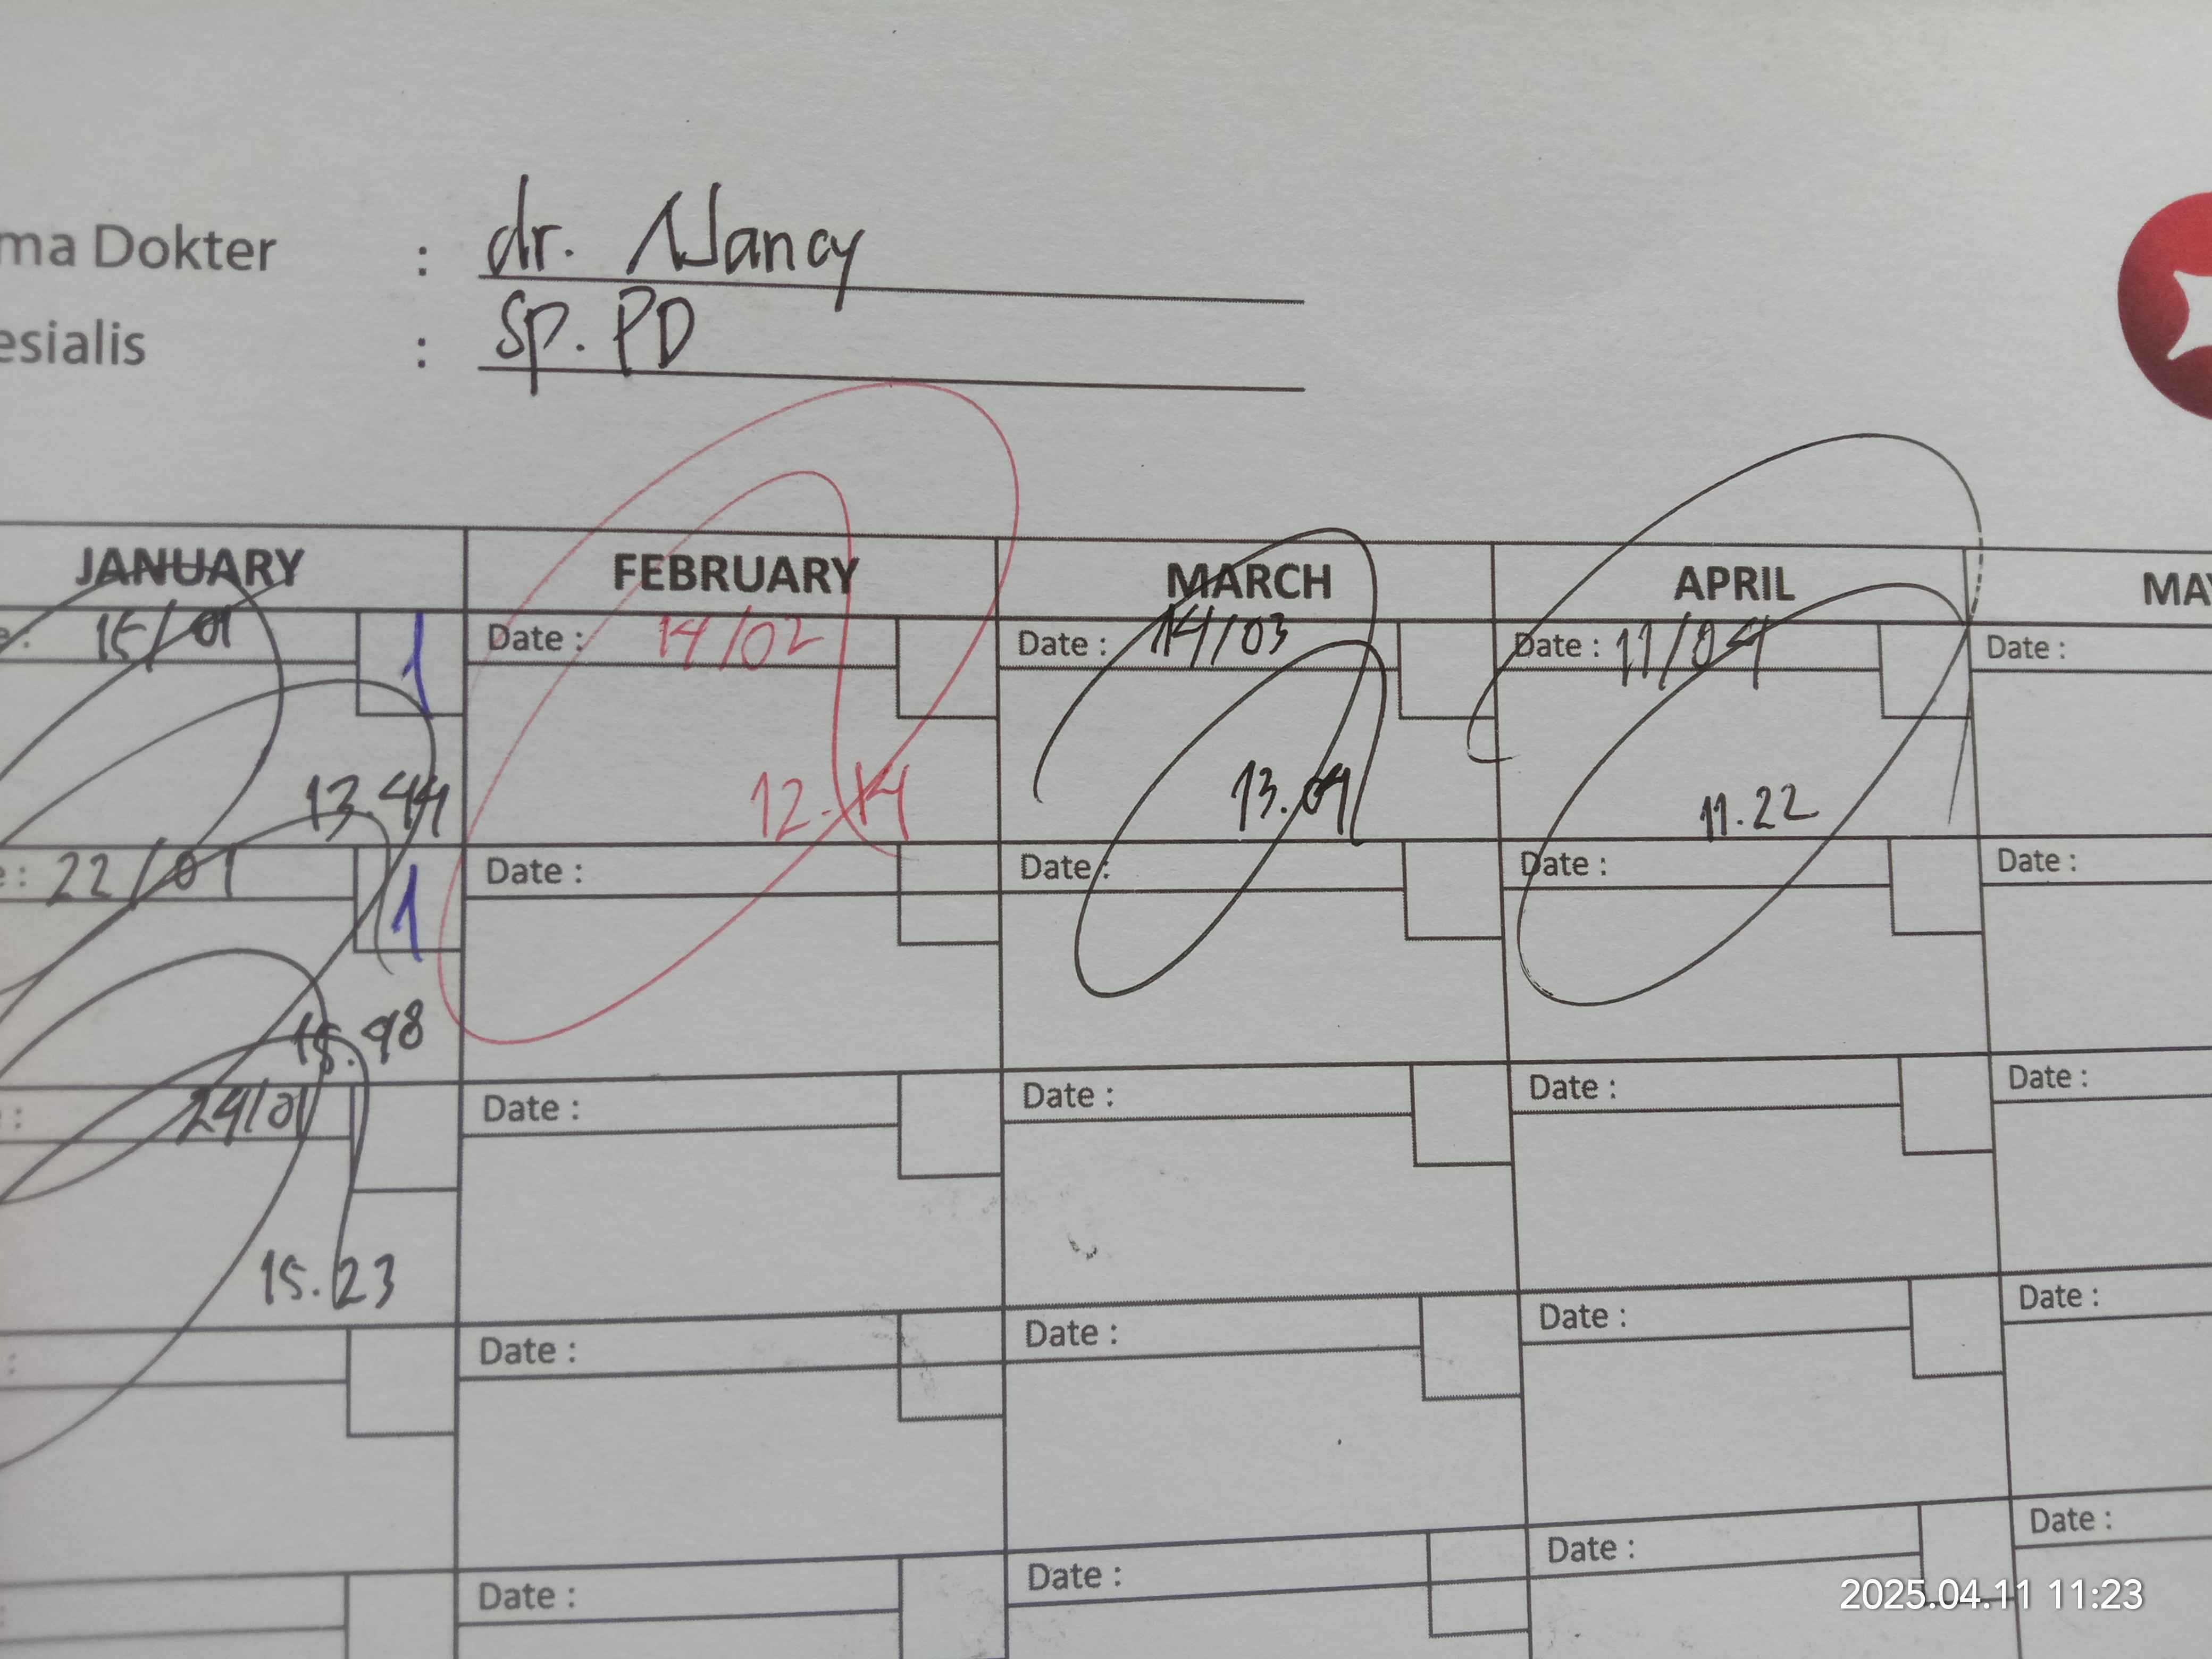 ma Dokter : dr. Nancy
esialis : Sp. PD
JANUARY FEBRUARY MARCH APRIL MAY
e : 15/01 1 Date : 14/02 Date : 14/03 Date : 11/04 Date :
13.44 12.14 13.09 11.22
e : 22/01 1 Date : Date : Date : Date :
15.48
: 24/01 Date : Date : Date : Date :
15.23
: Date : Date : Date : Date :
: Date : Date : Date : Date :
2025.04.11 11:23